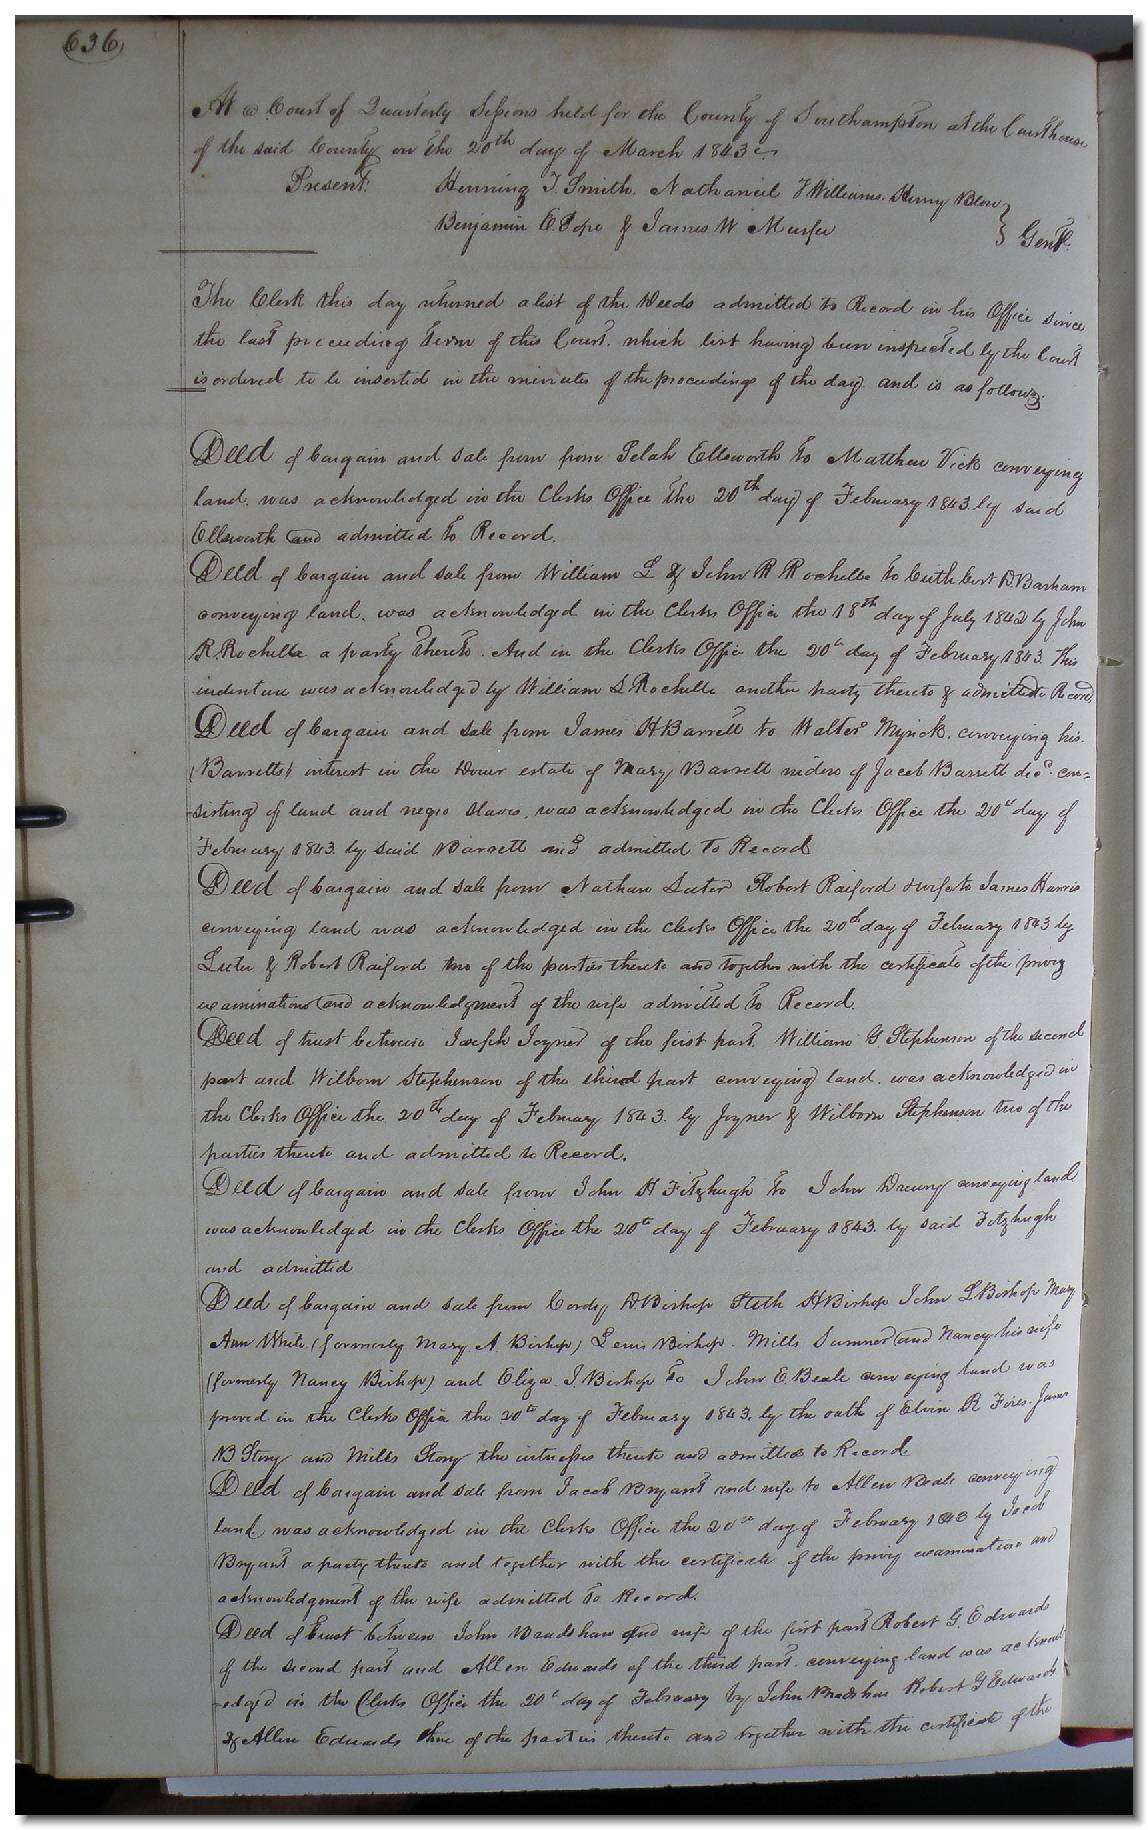 636
At a Court of Quarterly Sessions held for the County of Southampton at the Courthouse
of the said County on the 20th day of March 1843
Present: Henning T. Smith. Nathaniel F Williams. Henry Blow
Benjamin E Pope & James W Murfee } Gent:
The Clerk this day returned a list of the Deeds admitted to Record in his Office since
the last preceeding Term of this Court. which list having been inspected by the Court
is ordered to be inserted in the minutes of the proceedings of the day. and is as follows.
Deed of bargain and sale from from Selah Ellsworth to Matthew Vick conveying
land. was acknowledged in the Clerks Office the 20th day of February 1843. by said
Ellsworth and admitted to Record.
Deed of bargain and sale from William L & John R Rochelle to Cuthbert D. Barham
conveying land, was acknowledged in the Clerks Office the 18th day of July 1842 by John
R. Rochelle a party thereto. And in the Clerks Office the 20th day of February 1843. This
indenture was acknowledged by William L Rochelle another party thereto & admitted to Record
Deed of bargain and sale from James H Barrett to Walter Myrick. conveying his
(Barretts) interest in the Dower estate of Mary Barrett widow of Jacob Barrett decd. con-
-sisting of land and negro slaves, was acknowledged in the Clerks Office the 20th day of
February 1843. by said Barrett and admitted to Record
Deed of bargain and sale from Nathan Luter Robert Raiford & wife to James Harris
conveying land was acknowledged in the Clerks Office the 20th day of February 1843 by
Luter & Robert Raiford two of the parties thereto and together with the certificate of the privy
examination and acknowledgment of the wife admitted to Record.
Deed of trust between Joseph Joyner of the first part. William G. Stephenson of the second
part and Wilborn Stephenson of the third part conveying land. was acknowledged in
the Clerks Office the 20th day of February 1843. by Joyner & Wilborn Stephenson two of the
parties thereto and admitted to Record.
Deed of bargain and sale from John H Fitzhugh to John Drewry conveying land
was acknowledged in the Clerks Office the 20th day of February 1843. by said Fitzhugh
and admitted
Deed of bargain and sale from Cordy D Bishop Seth H Bishop John L Bishop Mary
Ann White (formerly Mary A Bishop) Lewis Bishop. Mills Sumner and Nancy his wife
(formerly Nancy Bishop) and Eliza J. Bishop to John E. Beale conveying land was
proved in the Clerks Office the 20th day of February 1843. by the oath of Elvin R Fires. James
B Story and Mills Story the witnesses thereto and admitted to Record
Deed of bargain and sale from Jacob Bryant and wife to Allen Beale conveying
land was acknowledged in the Clerks Office the 20th day of February 1843 by Jacob
Bryant a party thereto and together with the certificate of the privy examination and
acknowledgment of the wife admitted to Record.
Deed of trust between John Bradshaw and wife of the first part Robert G. Edwards
of the second part and Allen Edwards of the third part. conveying land was acknowl
-edged in the Clerks Office the 20th day of February by John Bradshaw Robert G Edwards
& Allen Edwards three of the parties thereto and together with the certificate of the